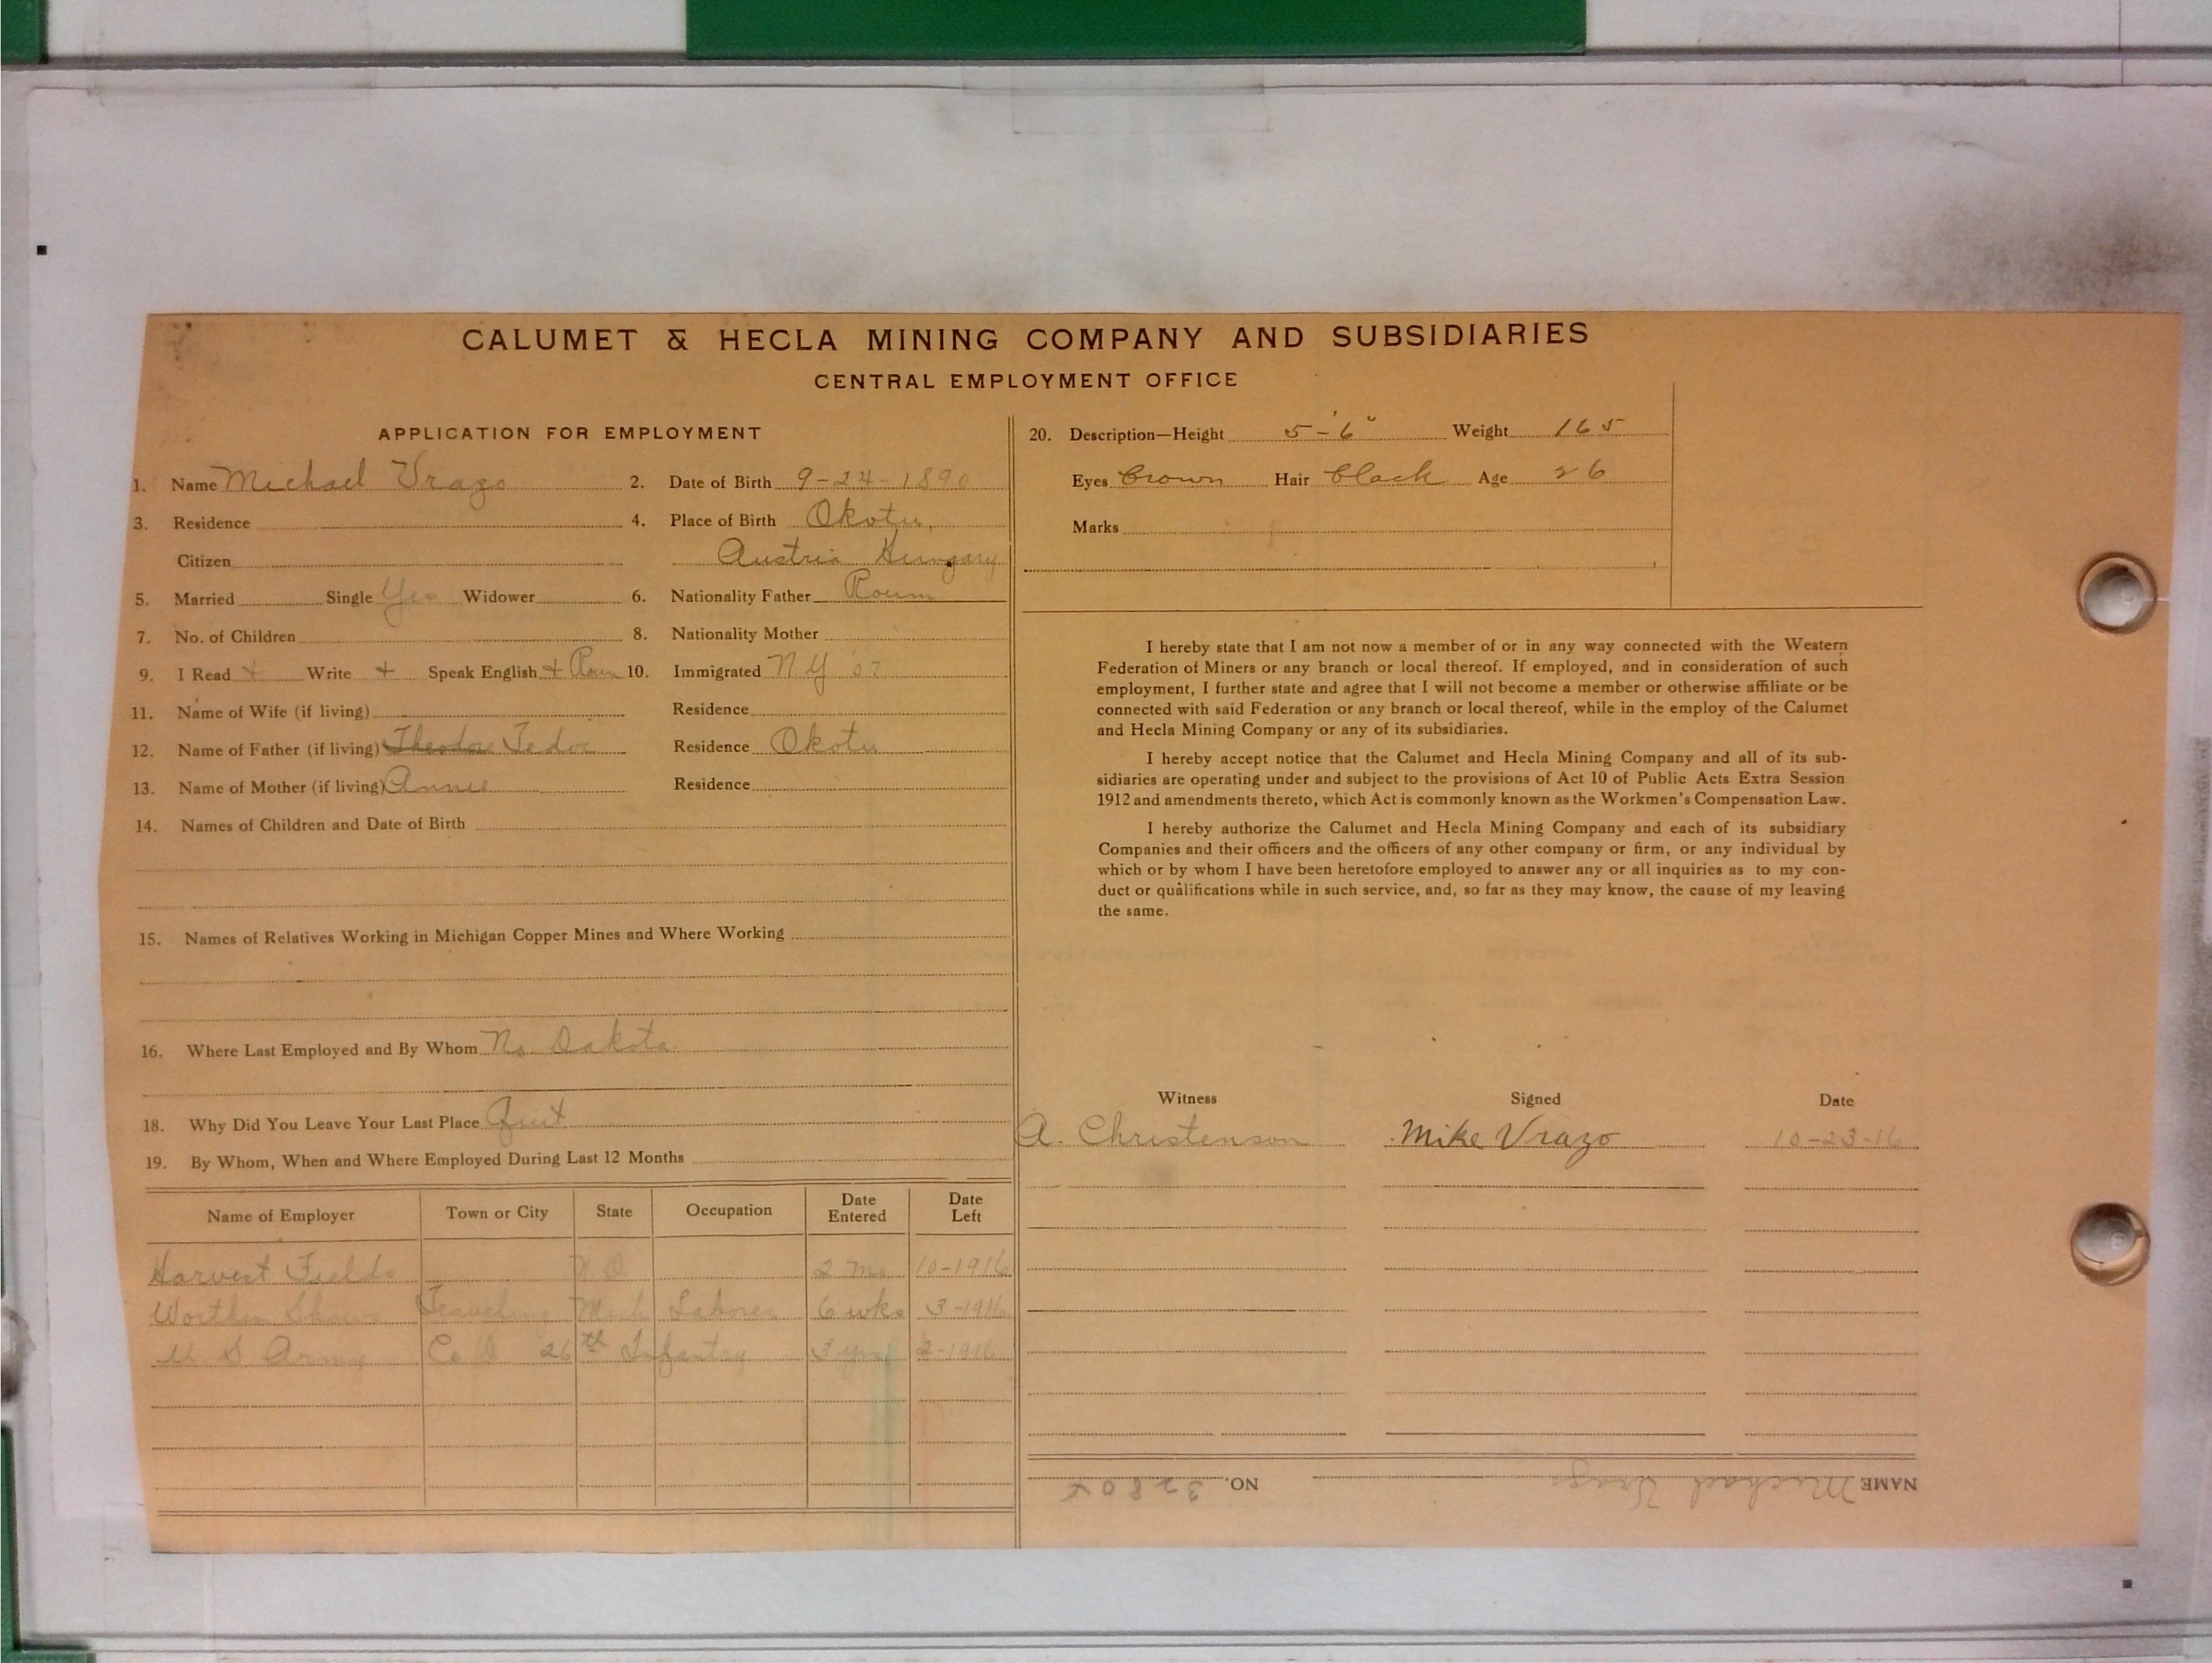 CALUMET & HECLA MINING COMPANY AND SUBSIDIARIES
CENTRAL EMPLOYMENT OFFICE
APPLICATION FOR EMPLOYMENT
1. Name Michael Vrazo 2. Date of Birth 9-24-1890
3. Residence 4. Place of Birth Okotu,
Citizen Austria Hungary
5. Married Single Yes Widower 6. Nationality Father Roum
7. No. of Children 8. Nationality Mother
9. I Read + Write + Speak English + Roum 10. Immigrated NY '07
11. Name of Wife (if living) Residence
12. Name of Father (if living) Theodore Tedor Residence Okotu
13. Name of Mother (if living) Annie Residence
14. Names of Children and Date of Birth
15. Names of Relatives Working in Michigan Copper Mines and Where Working
16. Where Last Employed and By Whom No Dakota
18. Why Did You Leave Your Last Place Quit
19. By Whom, When and Where Employed During Last 12 Months
Name of Employer Town or City State Occupation Date Entered Date Left
Harvest Fields N D 2 mo 10-1916
Shows Traveling Mich Laborer 6 wks 3-1916
U S Army Co D 26th Infantry 3 yrs 2-1916
20. Description—Height 5'-6" Weight 165
Eyes brown Hair black Age 26
Marks
I hereby state that I am not now a member of or in any way connected with the Western
Federation of Miners or any branch or local thereof. If employed, and in consideration of such
employment, I further state and agree that I will not become a member or otherwise affiliate or be
connected with said Federation or any branch or local thereof, while in the employ of the Calumet
and Hecla Mining Company or any of its subsidiaries.
I hereby accept notice that the Calumet and Hecla Mining Company and all of its sub-
sidiaries are operating under and subject to the provisions of Act 10 of Public Acts Extra Session
1912 and amendments thereto, which Act is commonly known as the Workmen's Compensation Law.
I hereby authorize the Calumet and Hecla Mining Company and each of its subsidiary
Companies and their officers and the officers of any other company or firm, or any individual by
which or by whom I have been heretofore employed to answer any or all inquiries as to my con-
duct or qualifications while in such service, and, so far as they may know, the cause of my leaving
the same.
Witness Signed Date
A. Christenson Mike Vrazo 10-23-16
NAME Michael Vrazo NO.